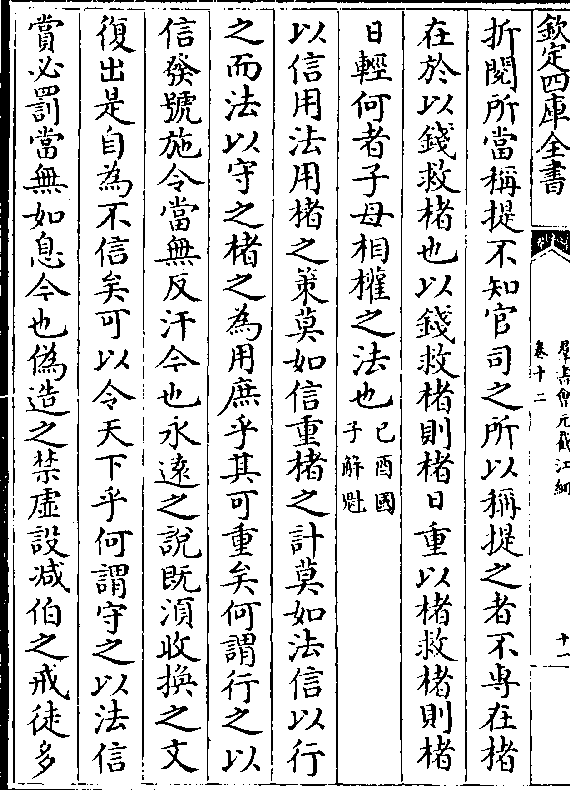 欽定四庫全書
羣書會元截江網
卷十二
十一
折閱所當稱提不知官司之所以稱提之者不専在楮
在於以錢救楮也以錢救楮則楮日重以楮救楮則楮
日輕何者子母相權之法也
己酉國
子解魁
以信用法用楮之策莫如信重楮之計莫如法信以行
之而法以守之楮之為用庶乎其可重矣何謂行之以
信發號施令當無反汗今也永逺之說既湏收換之文
復出是自為不信矣可以令天下乎何謂守之以法信
賞必罰當無如息今也偽造之禁虚設减伯之戒徒多